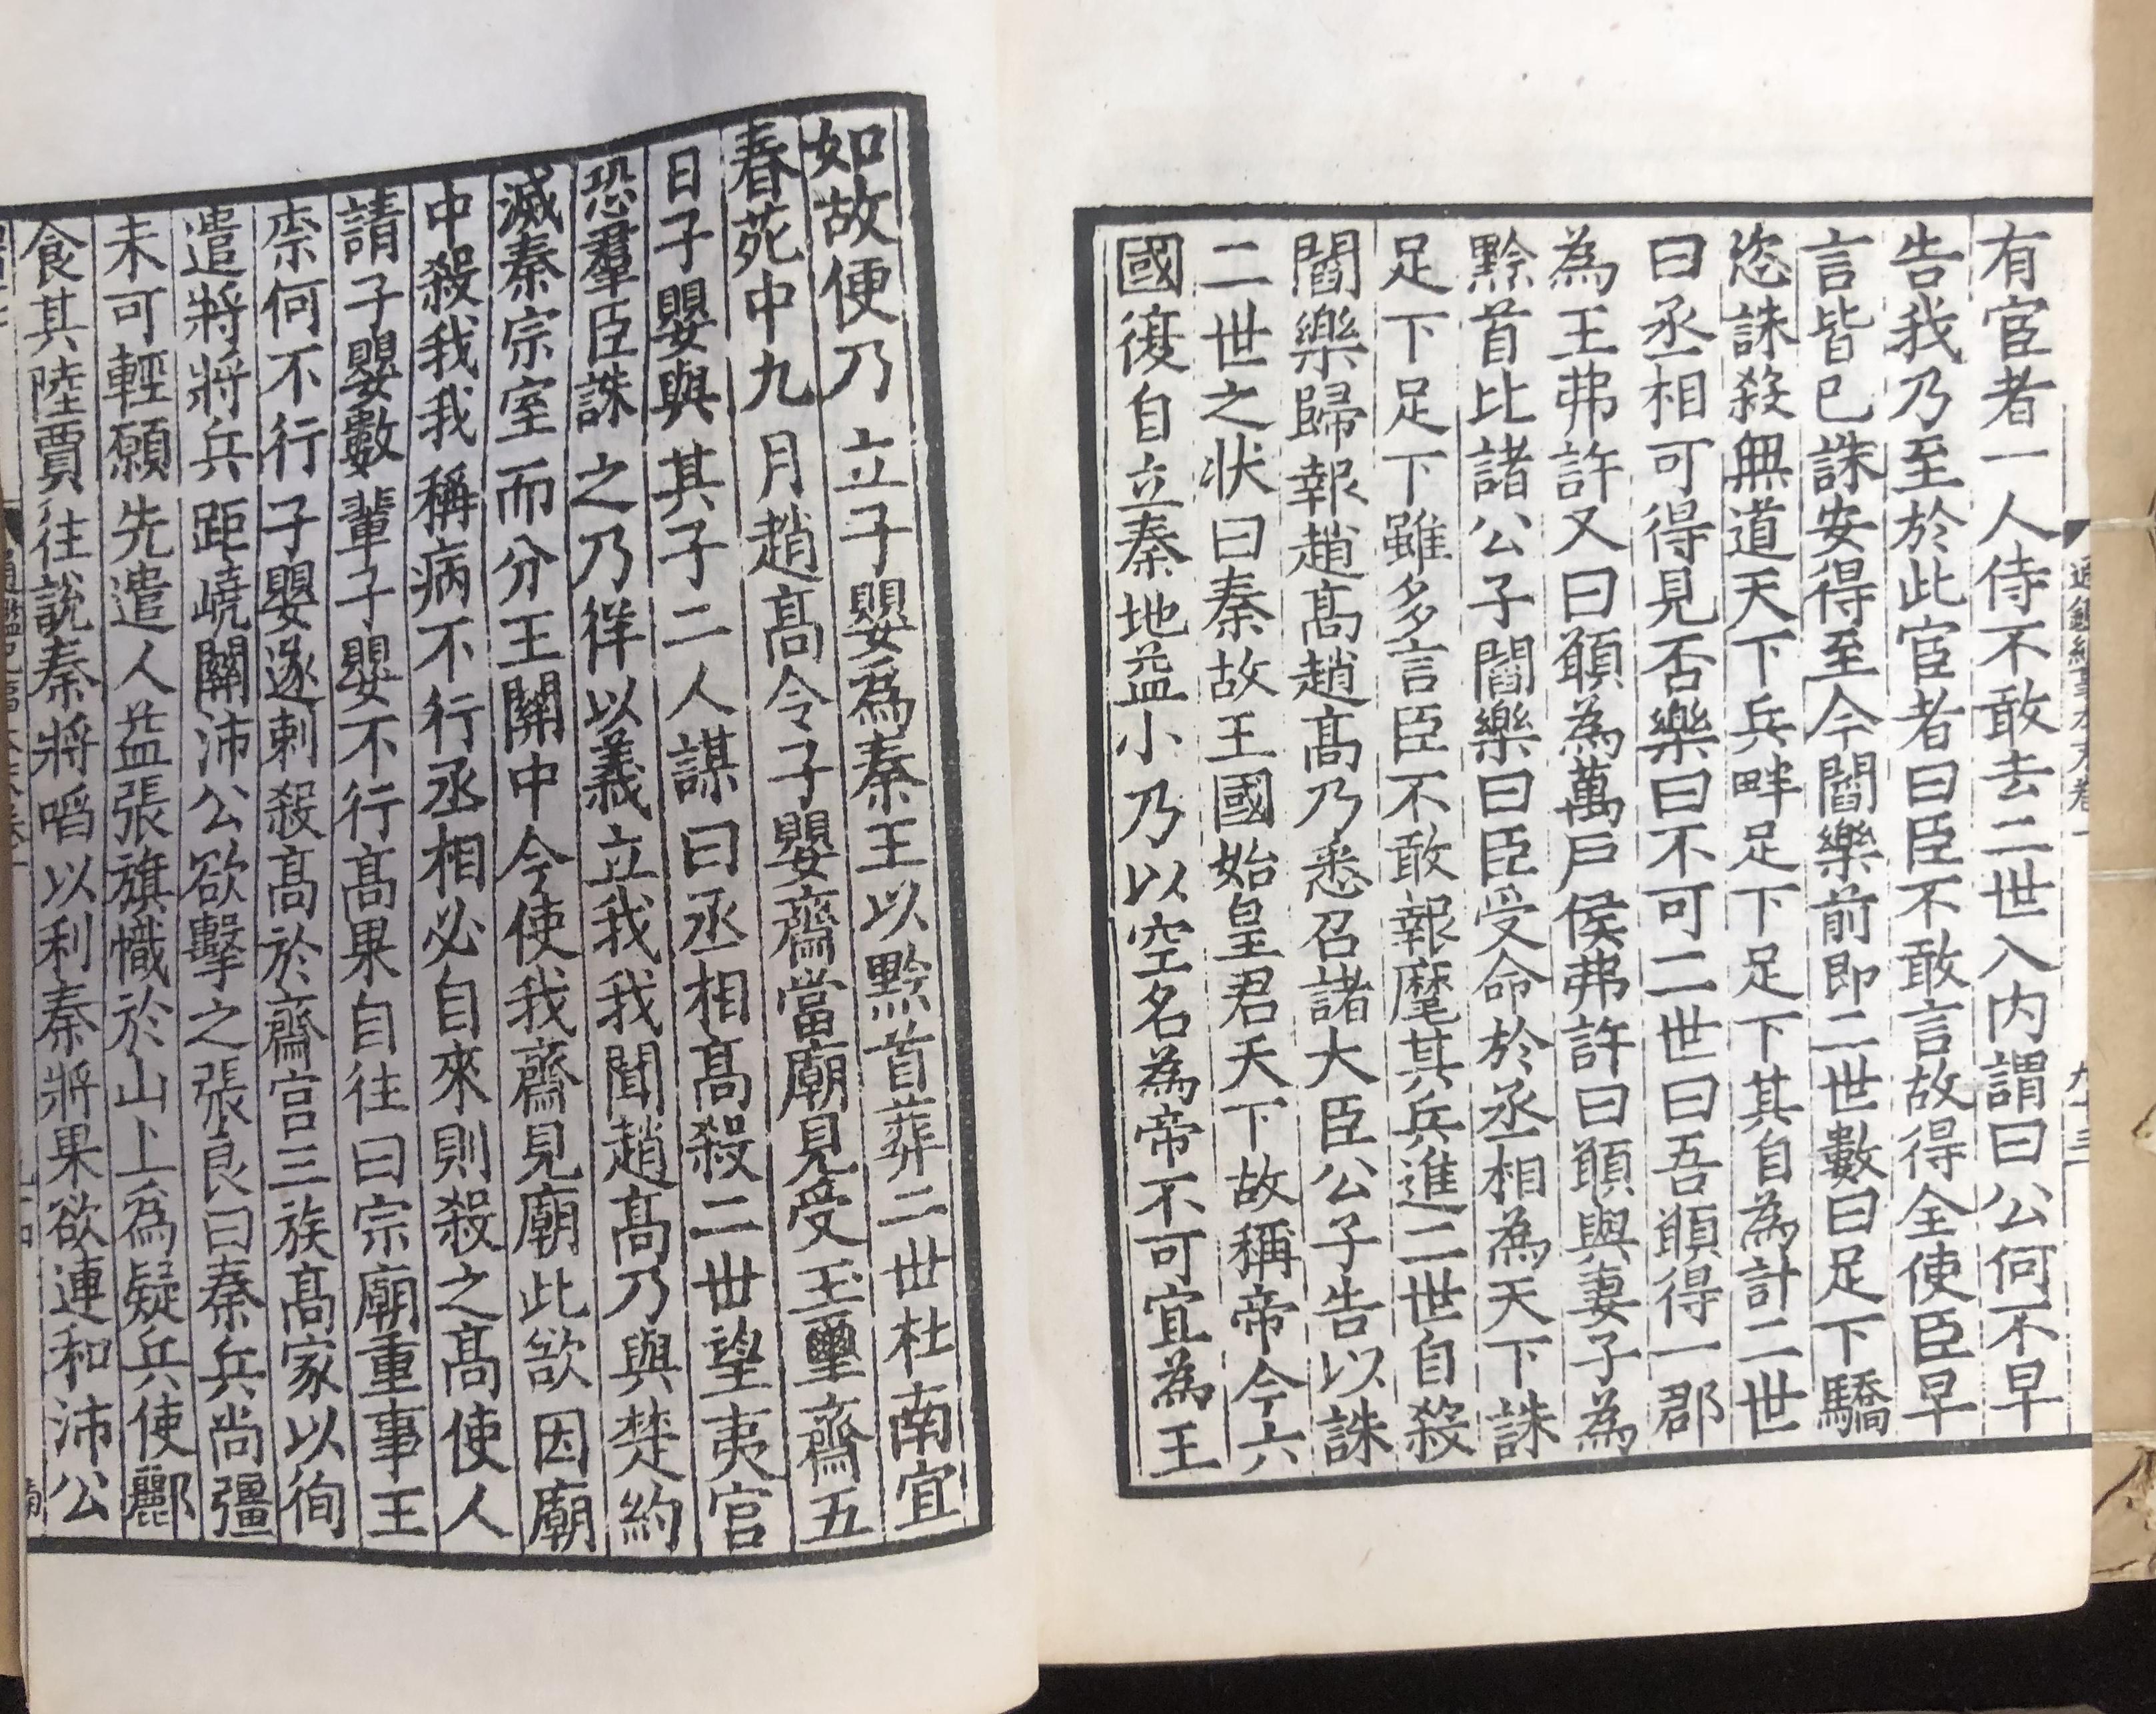 通鑑紀事本末卷一
有宦者一人侍不敢去二世入內謂曰公何不早
告我乃至於此宦者曰臣不敢言故得全使臣早
言皆已誅安得至今閻樂前即二世數曰足下驕
恣誅殺無道天下兵畔足下足下其自為計二世
曰丞相可得見否樂曰不可二世曰吾願得一郡
為王弗許又曰願為萬戶侯弗許曰願與妻子為
黔首比諸公子閻樂曰臣受命於丞相為天下誅
足下足下雖多言臣不敢報麾其兵進二世自殺
閻樂歸報趙高趙高乃悉召諸大臣公子告以誅
二世之狀曰秦故王國始皇君天下故稱帝今六
國復自立秦地益小乃以空名為帝不可宜為王
如故便乃立子嬰爲秦王以黔首葬二世杜南宜
春苑中九月趙高令子嬰齋當廟見受玉璽齋五
日子嬰與其子二人謀曰丞相高殺二世望夷宮
恐羣臣誅之乃徉以義立我我聞趙高乃與楚約
滅秦宗室而分王關中今使我齋見廟此欲因廟
中殺我我稱病不行丞相必自來則殺之高使人
請子嬰數輩子嬰不行高果自往曰宗廟重事王
柰何不行子嬰遂刺殺高於齋宮三族高家以徇
遣將將兵距嶢關沛公欲擊之張良曰秦兵尚彊
未可輕願先遣人益張旗幟於山上爲疑兵使酈
食其陸賈往說秦將啗以利秦將果欲連和沛公